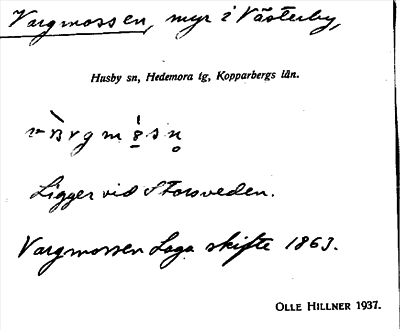 Vargmossen, myr i Västerby,
Husby sn, Hedemora tg, Kopparbergs län.
Ligger vid Storsveden.
Vargmossen Laga skifte 1863.
OLLE HILLNER 1937.